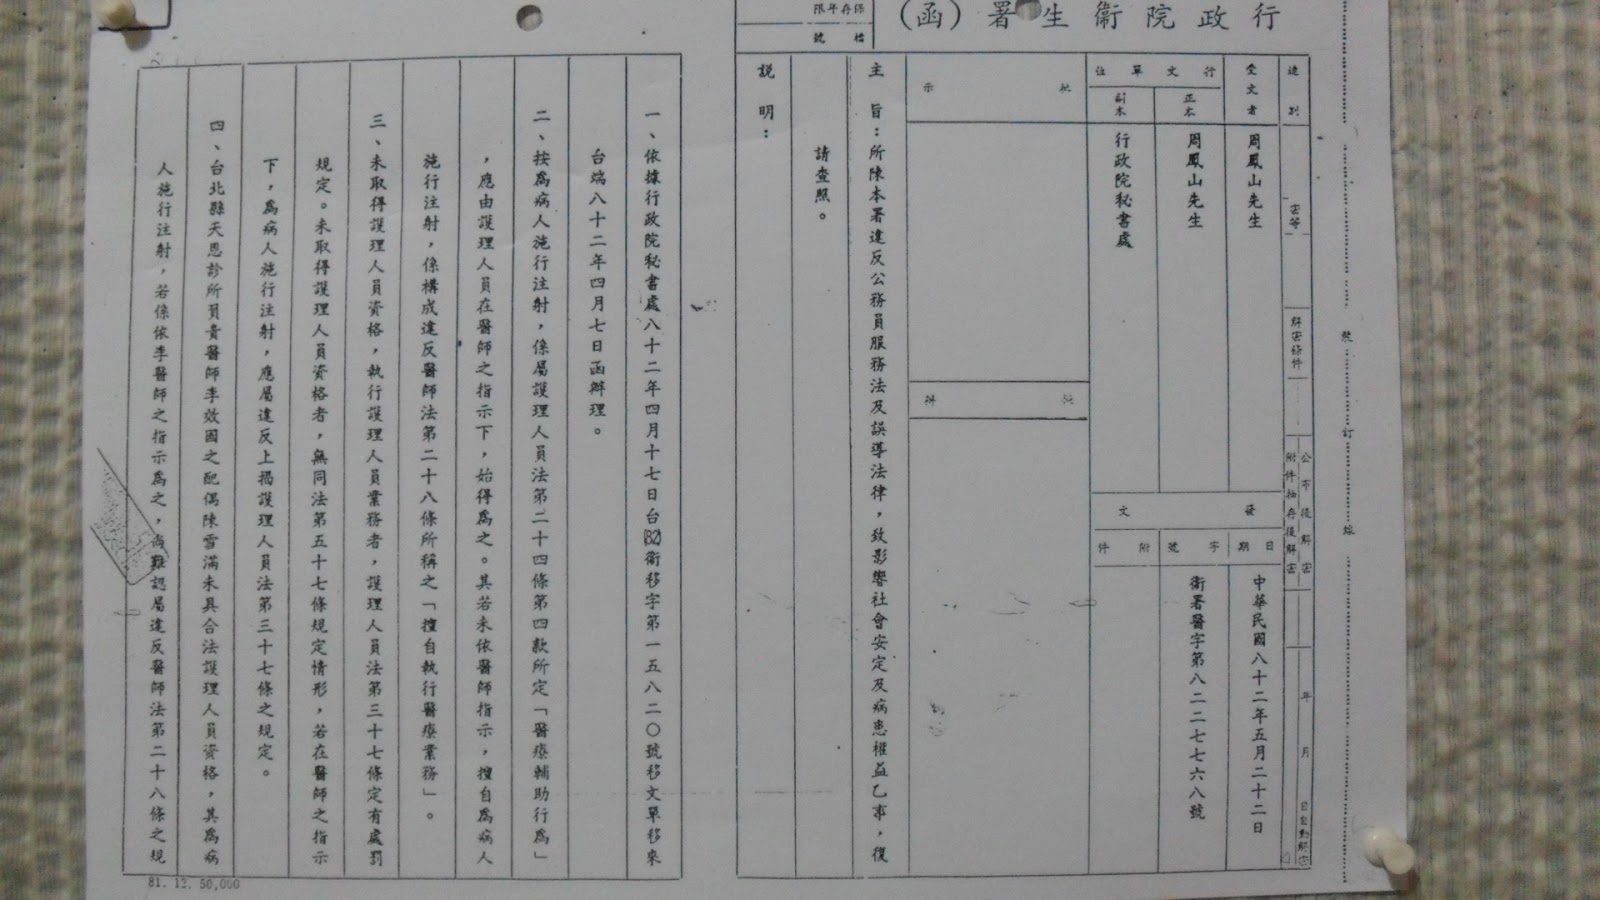 行政院衞生署（函）
保存年限
檔號
速別
密等
解密條件
公布後解密
附件抽存後解密
年　月　日自動解密
受文者
周鳳山先生
行文單位
正本
周鳳山先生
副本
行政院秘書處
發文
日期
中華民國八十二年五月二十二日
字號
衞署醫字第八二二七七六八號
附件
批示
主旨：所陳本署違反公務員服務法及誤導法律，致影響社會安定及病患權益乙事，復
請查照。
說明：
一、依據行政院秘書處八十二年四月十七日台(82)衞移字第一五八二〇號移文單移來
台端八十二年四月七日函辦理。
二、按為病人施行注射，係屬護理人員法第二十四條第四款所定「醫療輔助行為」
，應由護理人員在醫師之指示下，始得為之。其若未依醫師指示，擅自為病人
施行注射，係構成違反醫師法第二十八條所稱之「擅自執行醫療業務」。
三、未取得護理人員資格，執行護理人員業務者，護理人員法第三十七條定有處罰
規定。未取得護理人員資格者，無同法第五十七條規定情形，若在醫師之指示
下，為病人施行注射，應屬違反上揭護理人員法第三十七條之規定。
四、台北縣天恩診所負責醫師李效國之配偶陳雪滿未具合法護理人員資格，其為病
人施行注射，若係依李醫師之指示為之，尚難認屬違反醫師法第二十八條之規
81. 12. 50,000
裝訂線